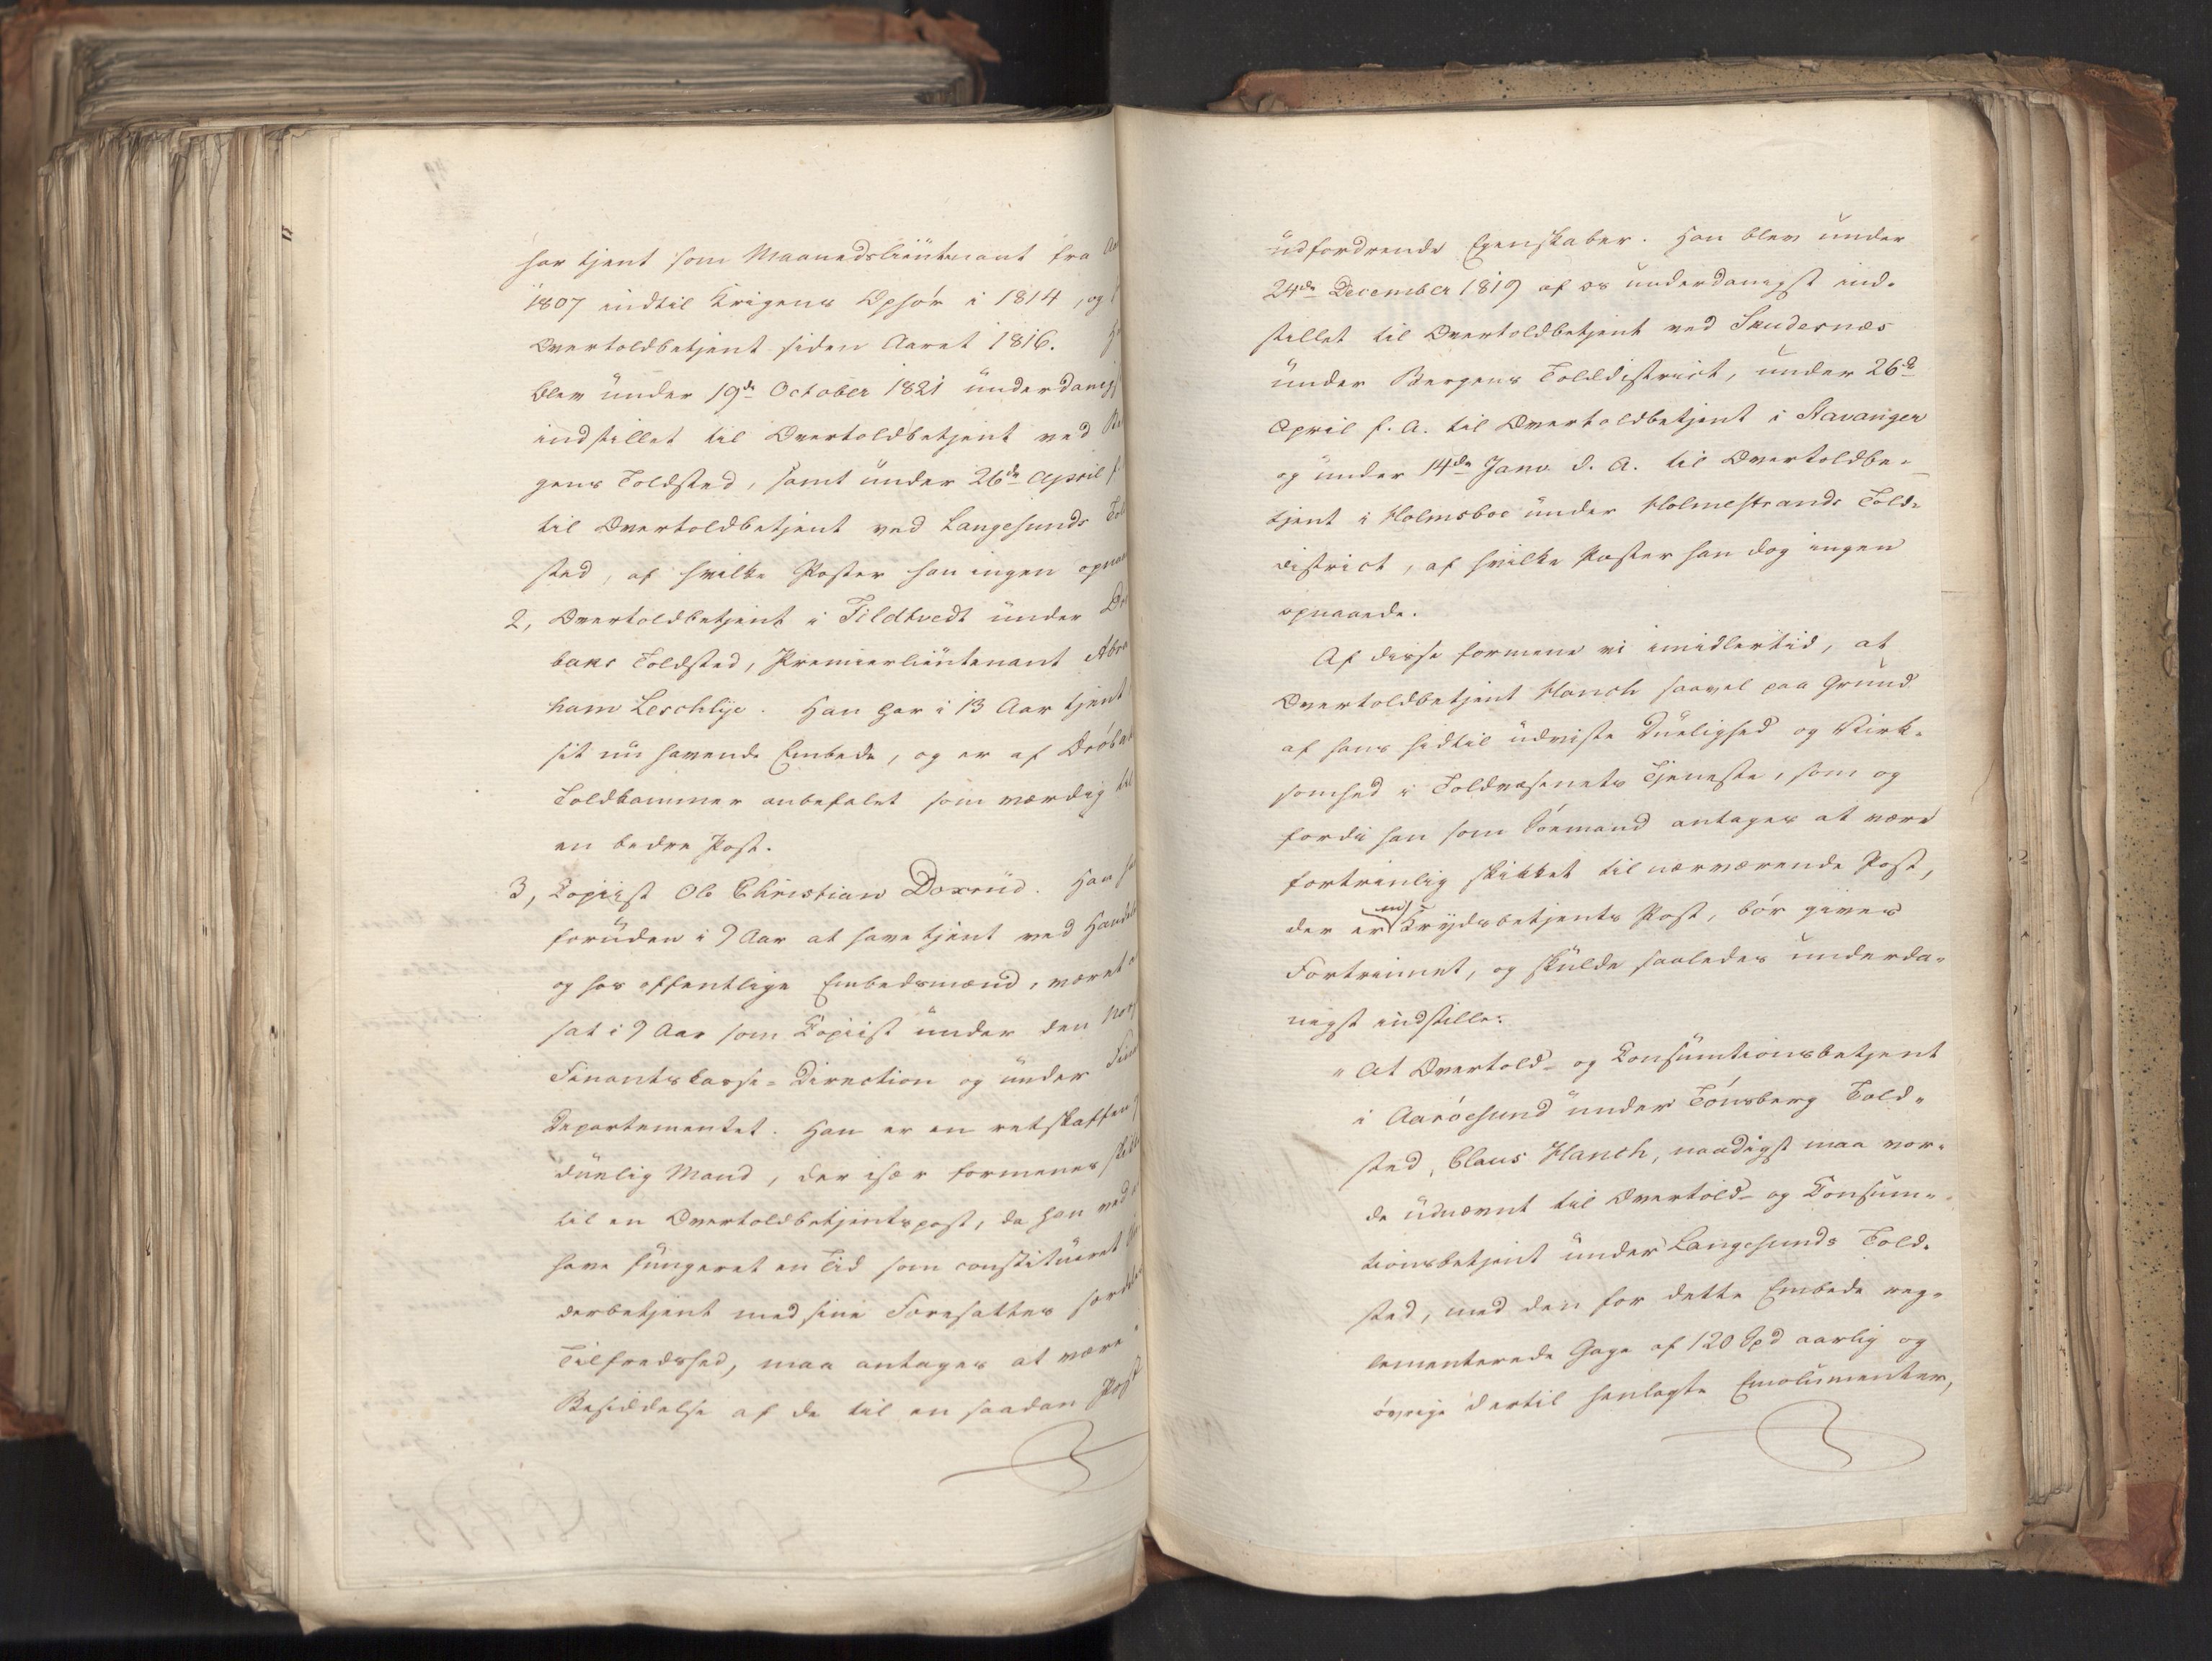 har tjent som Maanedslieutenant fra
1807 indtil Krigens Ophør i 1814, og
Overtoldbetjent siden Aaret 1816.
blev under 19de October 1821 underdanigst
indstillet til Overtoldbetjent ved Ber
gens Toldsted, samt under 26de April f.
til Overtoldbetjent ved Langesunds Told
sted, af hvilke Poster han ingen opnaa
2, Overtoldbetjent i Fildtvedt under Drø
baks Toldsted, Premierlieutenant Abra
ham Leschlye. Han har i 13 Aar tjent
sit nu havende Embede, og er af Drøbak
Toldkammer anbefalet som værdig til
en bedre Post.
3, Copiist Ole Christian Doxrud. Han ha
foruden i 9 Aar at have tjent ved Handel
og hos offentlige Embedsmænd, været
sat i 9 Aar som Copiist under den Nor
Finantscasse-Direction og under Finan
Departementet. Han er en retskaffen
duelig Mand, der især formenes skik
til en Overtoldbetjentspost, da han ved
have fungeret en Tid som constitueret
derbetjent med sine Foresattes særdeles
Tilfredshed, maa antages at være i
Besiddelse af de til en saadan Post
udfordrende Egenskaber. Han blev under
24de December 1819 af os underdanigst ind-
stillet til Overtoldbetjent ved Skudesnæs
under Bergens Tolddistrict, under 26de
April f. A. til Overtoldbetjent i Stavanger
og under 14de Janv d. A. til Overtoldbe-
tjent i Holmsboe under Holmestrands Told-
district, af hvilke Poster han dog ingen
opnaaede.
Af disse formene vi imidlertid, at
Overtoldbetjent Hanch saavel paa Grund
af hans hidtil udviste Duelighed og Virk-
somhed i Toldvæsenets Tjeneste, som og
fordi han som Søemand antages at være
fortrinlig skikket til nærværende Post,
der er en Krydsbetjents Post, bør gives
Fortrinnet, og skulde saaledes underda-
nigst indstille:
"At Overtold- og Consumtionsbetjent
i Aarøesund under Tønsberg Told-
sted, Claus Hanch, naadigst maa vor-
de udnævnt til Overtold- og Consum-
tionsbetjent under Langesunds Told-
sted, med den for dette Embede reg-
lementerede Gage af 120 Spd aarlig og
øvrige dertil henlagte Emolumenter,